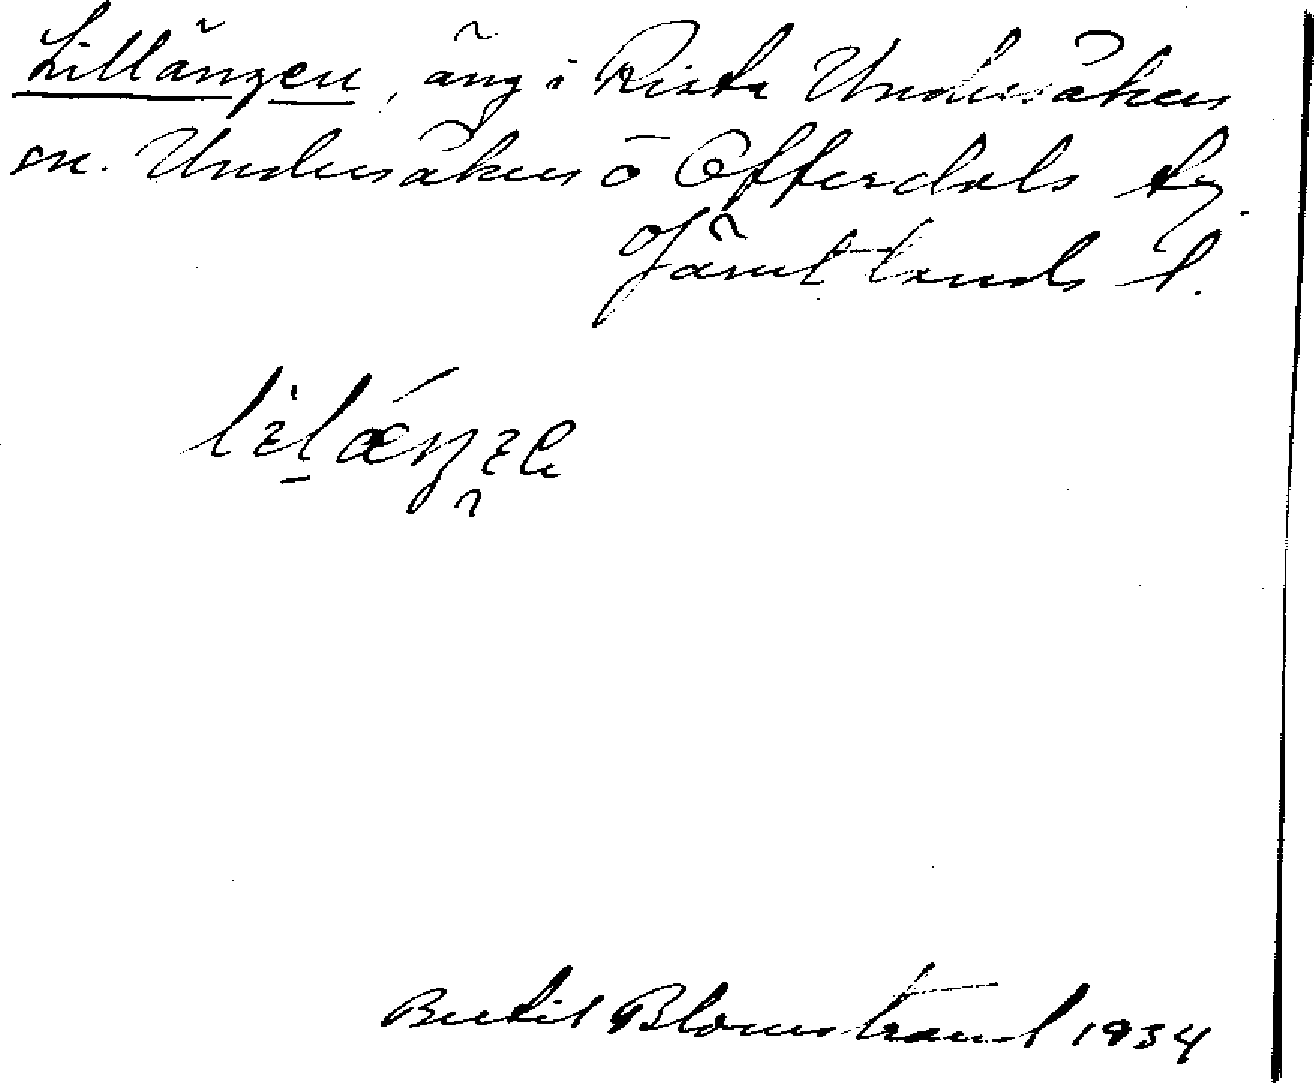 Lillängen, äng i Rista Undersåkers
sn. Undersåkers o Offerdals tg.
Jämtlands l.
Bertil Blomstrand 1934